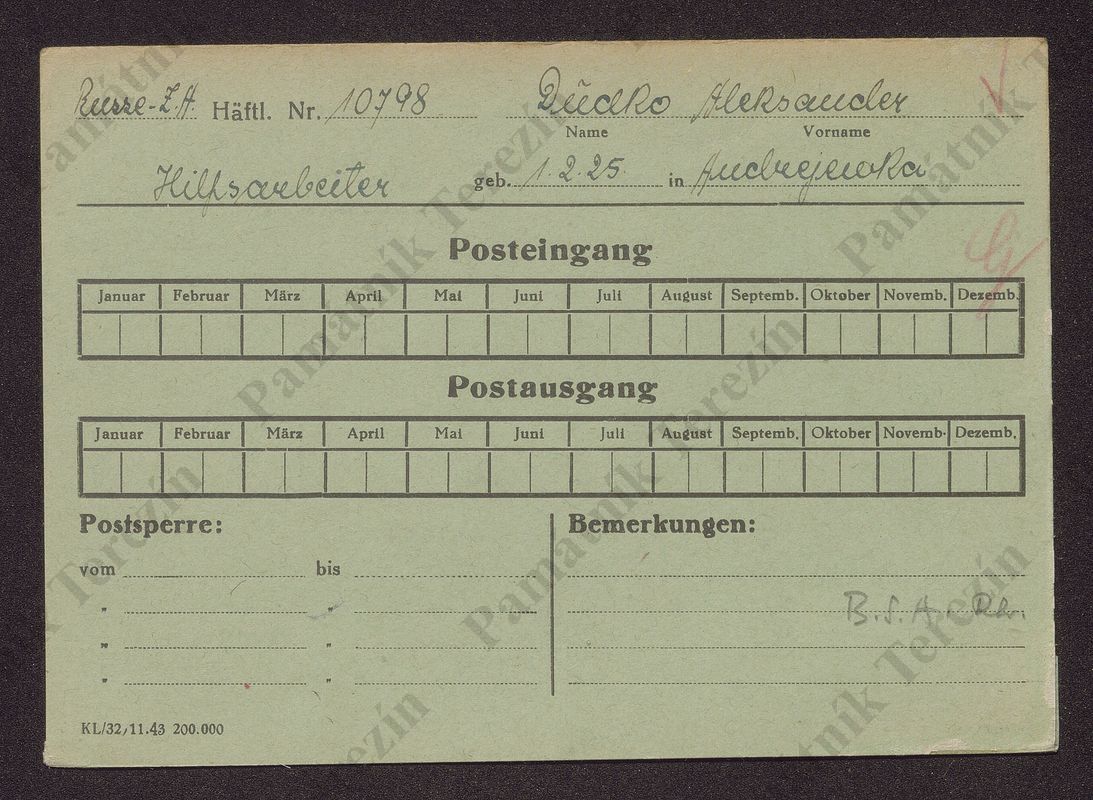 Russe-Z.A. Häftl. Nr. 10798 Dudko Aleksander
Name Vorname
Hilfsarbeiter geb. 1.2.25. in Andrejewka
Posteingang
Januar Februar März April Mai Juni Juli August Septemb. Oktober Novemb. Dezemb.
Postausgang
Januar Februar März April Mai Juni Juli August Septemb. Oktober Novemb. Dezemb.
Postsperre: Bemerkungen:
vom bis
" "
B.S.A.
" "
" "
KL/32/11.43 200.000
Památník Terezín